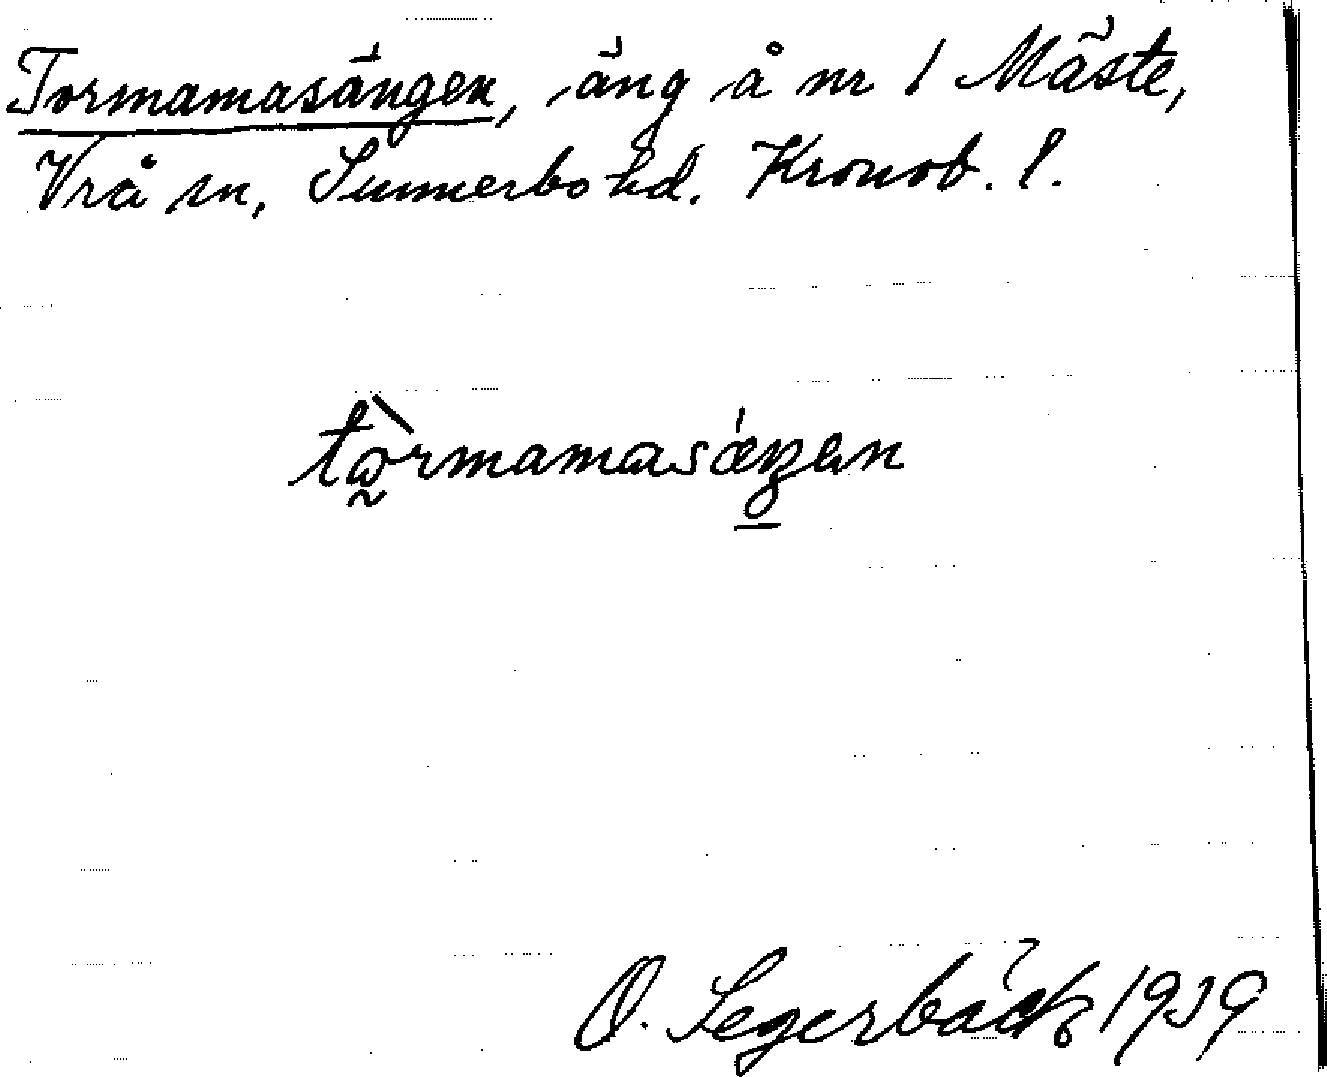 Tormamasängen, äng å nr 1 Mäste,
Vrå sn, Sunnerbo hd. Kronob. l.
tò̰rmamasǽŋen
O. Segerbäck 1939